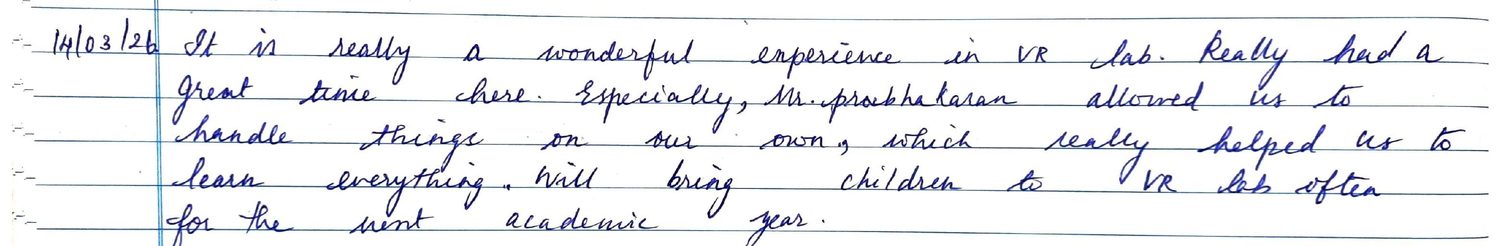 14/03/26 It is really a wonderful experience in VR lab. Really had a
great time here. Especially, Mr. prabhakaran allowed us to
handle things on our own, which really helped us to
learn everything. Will bring children to VR lab often
for the next academic year.